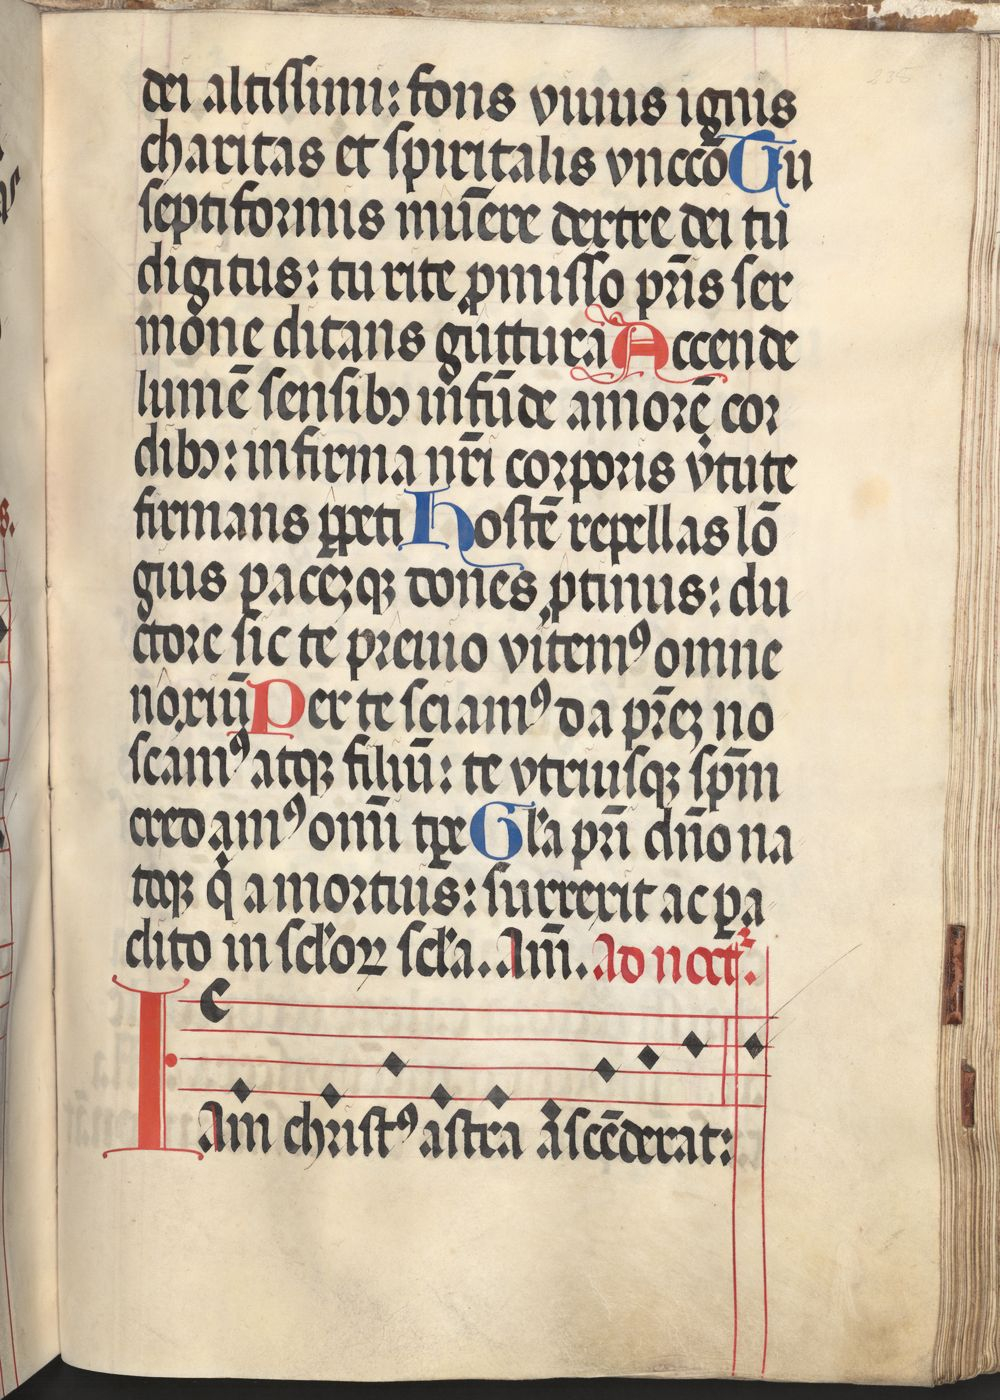 dei altissimi: fons viuus ignis
charitas et spiritalis vnccō Tu
septiformis mūere dextre dei tu
digitus: tu rite ꝓmisso pr̄is ser
mone ditans guttura Accende
lumē sensibꝫ infūde amorē cor
dibꝫ: infirma nr̄i corporis v̓tute
firmans ꝑpeti Hostē repellas lō
gius pacēqꝫ dones ꝓtinus: du
ctore sic te preuio vitemꝰ omne
noxiū Per te sciamꝰ da pr̄eꝫ no
scamꝰ atqꝫ filiū: te vtriusqꝫ sp̄m
credamꝰ omi̅ tꝑe Gl̓a pr̄i dn̄o na
toqꝫ q̓ a mortuis: surrexit ac ꝑa
clito in scl̓oꝝ scl̓a. Am̄. Ad noct᷑.
Iam christꝰ astra ascēderat:
235